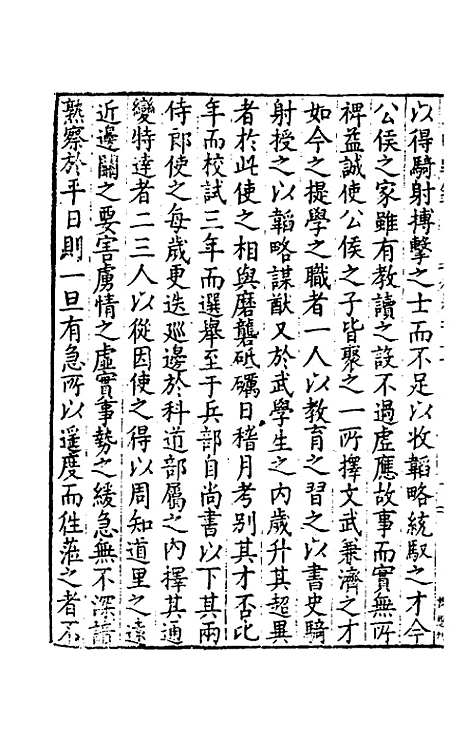 以得騎射搏擊之士而不足以收韜略統馭之才今
公侯之家雖有教讀之設不過虛應故事而實無所
裨益誠使公侯之子皆聚之一所擇文武兼濟之才
如今之提學之職者一人以教育之習之以書史騎
射授之以韜略謀猷又於武學生之內歲升其超異
者於此使之相與磨礱砥礪日稽月考別其才否比
年而校試三年而選舉至于兵部自尚書以下其兩
侍郎使之每歲更迭巡邊於科道部屬之內擇其通
變特達者二三人以從因使之得以周知道里之遠
近邊關之要害虜情之虛實事勢之緩急無不深諳
熟察於平日則一旦有急所以遙度而往蒞之者不